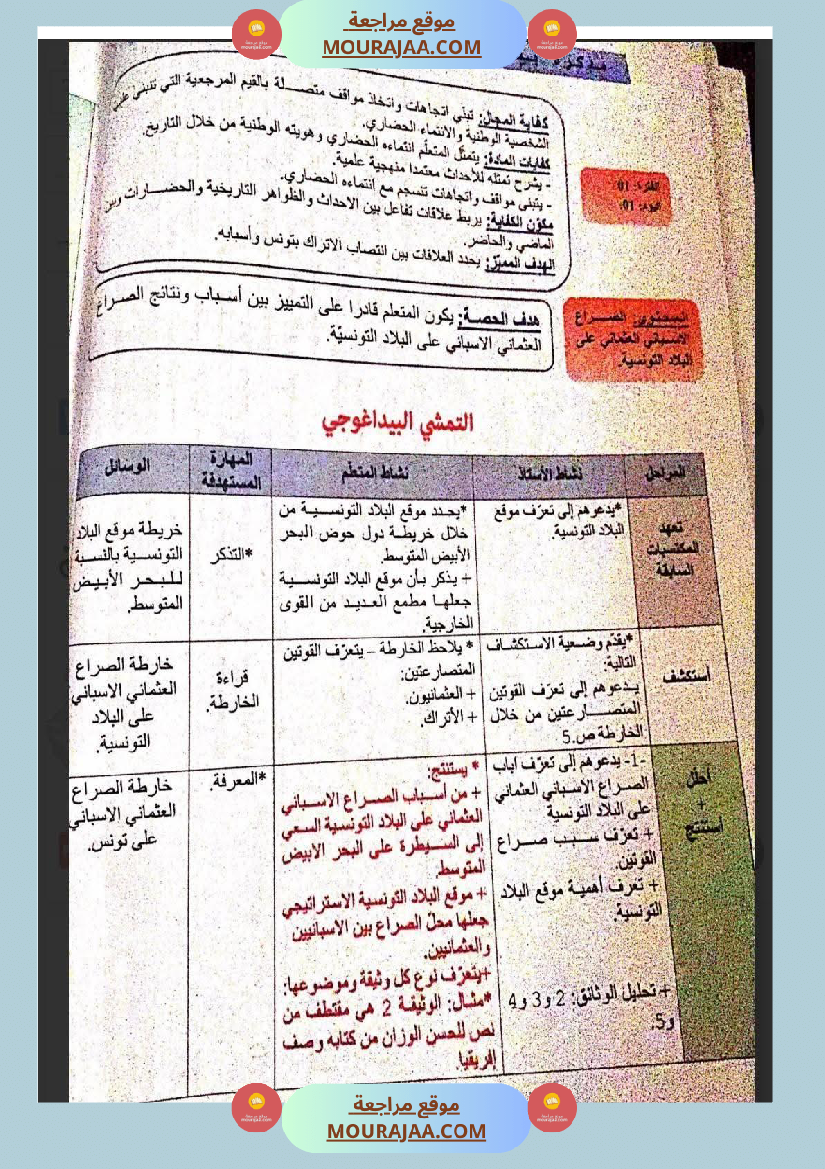 موقع مراجعة
MOURAJAA.COM
كفاية المجال: تبني اتجاهات واتخاذ مواقف متصلة بالقيم المرجعية التي تنبني على
الشخصية الوطنية والانتماء الحضاري.
كفايات المادة: يتمثل المتعلم انتماءه الحضاري وهويته الوطنية من خلال التاريخ.
- يشرح تمثله للأحداث معتمدا منهجية علمية.
- يتبنى مواقف واتجاهات تنسجم مع انتماءه الحضاري.
مكون الكفاية: يربط علاقات تفاعل بين الاحداث والظواهر التاريخية والحضارات وبين
الماضي والحاضر.
الهدف المميز: يحدد العلاقات بين انتصاب الاتراك بتونس وأسبابه.
الفترة: 01
اليوم: 01
هدف الحصة: يكون المتعلم قادرا على التمييز بين أسباب ونتائج الصراع
العثماني الاسباني على البلاد التونسيّة.
المحتوى: الصراع
الاسباني العثماني على
البلاد التونسية.
التمشي البيداغوجي
المراحل
نشاط الأستاذ
نشاط المتعلّم
المهارة
المستهدفة
الوسائل
تعهد
المكتسبات
السابقة
*يدعوهم إلى تعرّف موقع
البلاد التونسية.
*يحدد موقع البلاد التونسية من
خلال خريطة دول حوض البحر
الأبيض المتوسط.
+ يذكر بأن موقع البلاد التونسية
جعلها مطمع العديد من القوى
الخارجية.
*التذكر
خريطة موقع البلاد
التونسية بالنسبة
للبحر الأبيض
المتوسط.
أستكشف
*يقدّم وضعية الاستكشاف
التالية:
يدعوهم إلى تعرّف القوتين
المتصارعتين من خلال
الخارطة ص.5
* يلاحظ الخارطة – يتعرّف القوتين
المتصارعتين:
+ العثمانيون.
+ الأتراك.
قراءة
الخارطة.
خارطة الصراع
العثماني الاسباني
على البلاد
التونسية.
أحلّل
+
أستنتج
-1- يدعوهم إلى تعرّف اباب
الصراع الاسباني العثماني
على البلاد التونسية
+ تعرّف سبب صراع
القوتين.
+ تعرف أهمية موقع البلاد
التونسية.
+ تحليل الوثائق: 2 و3 و4
و5.
* يستنتج:
+ من أسباب الصراع الاسباني
العثماني على البلاد التونسية السعي
إلى السيطرة على البحر الأبيض
المتوسط.
+ موقع البلاد التونسية الاستراتيجي
جعلها محلّ الصراع بين الاسبانيين
والعثمانيين.
+يتعرّف نوع كل وثيقة وموضوعها:
*مثال: الوثيقة 2 هي مقتطف من
نص للحسن الوزان من كتابه وصف
إفريقيا.
*المعرفة.
خارطة الصراع
العثماني الاسباني
على تونس.
موقع مراجعة
MOURAJAA.COM